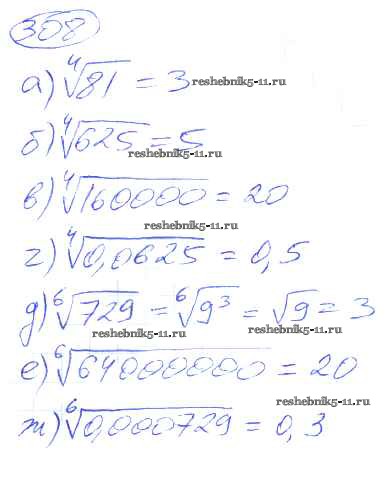 358
а) ⁴√81 = 3 reshebnik5-11.ru
б) ⁴√625 = 5
reshebnik5-11.ru
в) ⁴√160000 = 20
reshebnik5-11.ru
г) ⁴√0,0625 = 0,5
д) ⁶√729 = ⁶√9³ = √9 = 3
reshebnik5-11.ru reshebnik5-11.ru
е) ⁶√64000000 = 20
reshebnik5-11.ru
ж) ⁶√0,000729 = 0,3